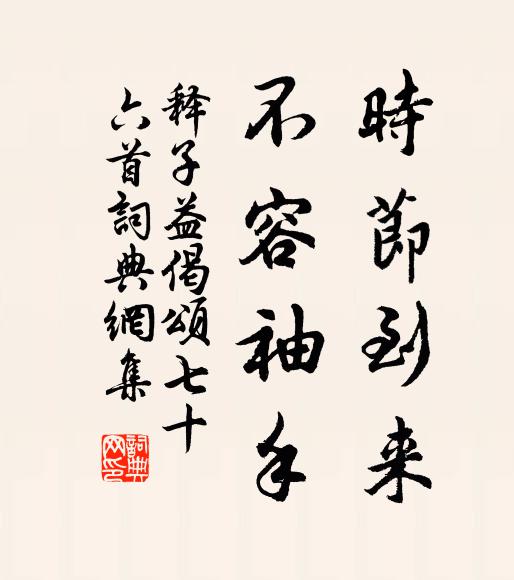 時節到来
不容袖手
释子益偈頌七十
六首詞典網集
詞典
网印